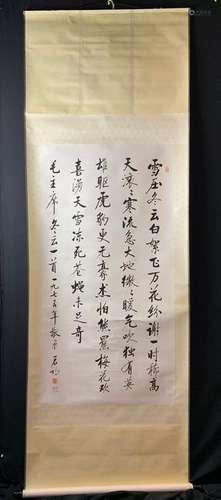 雪压冬云白絮飞万花纷谢一时稀高
天滚〻寒流急大地微〻暖气吹独有英
雄驱虎豹更无豪杰怕熊罴梅花欢
喜漫天雪冻死苍蝇未足奇
毛主席冬云一首一九七五年敬书启功